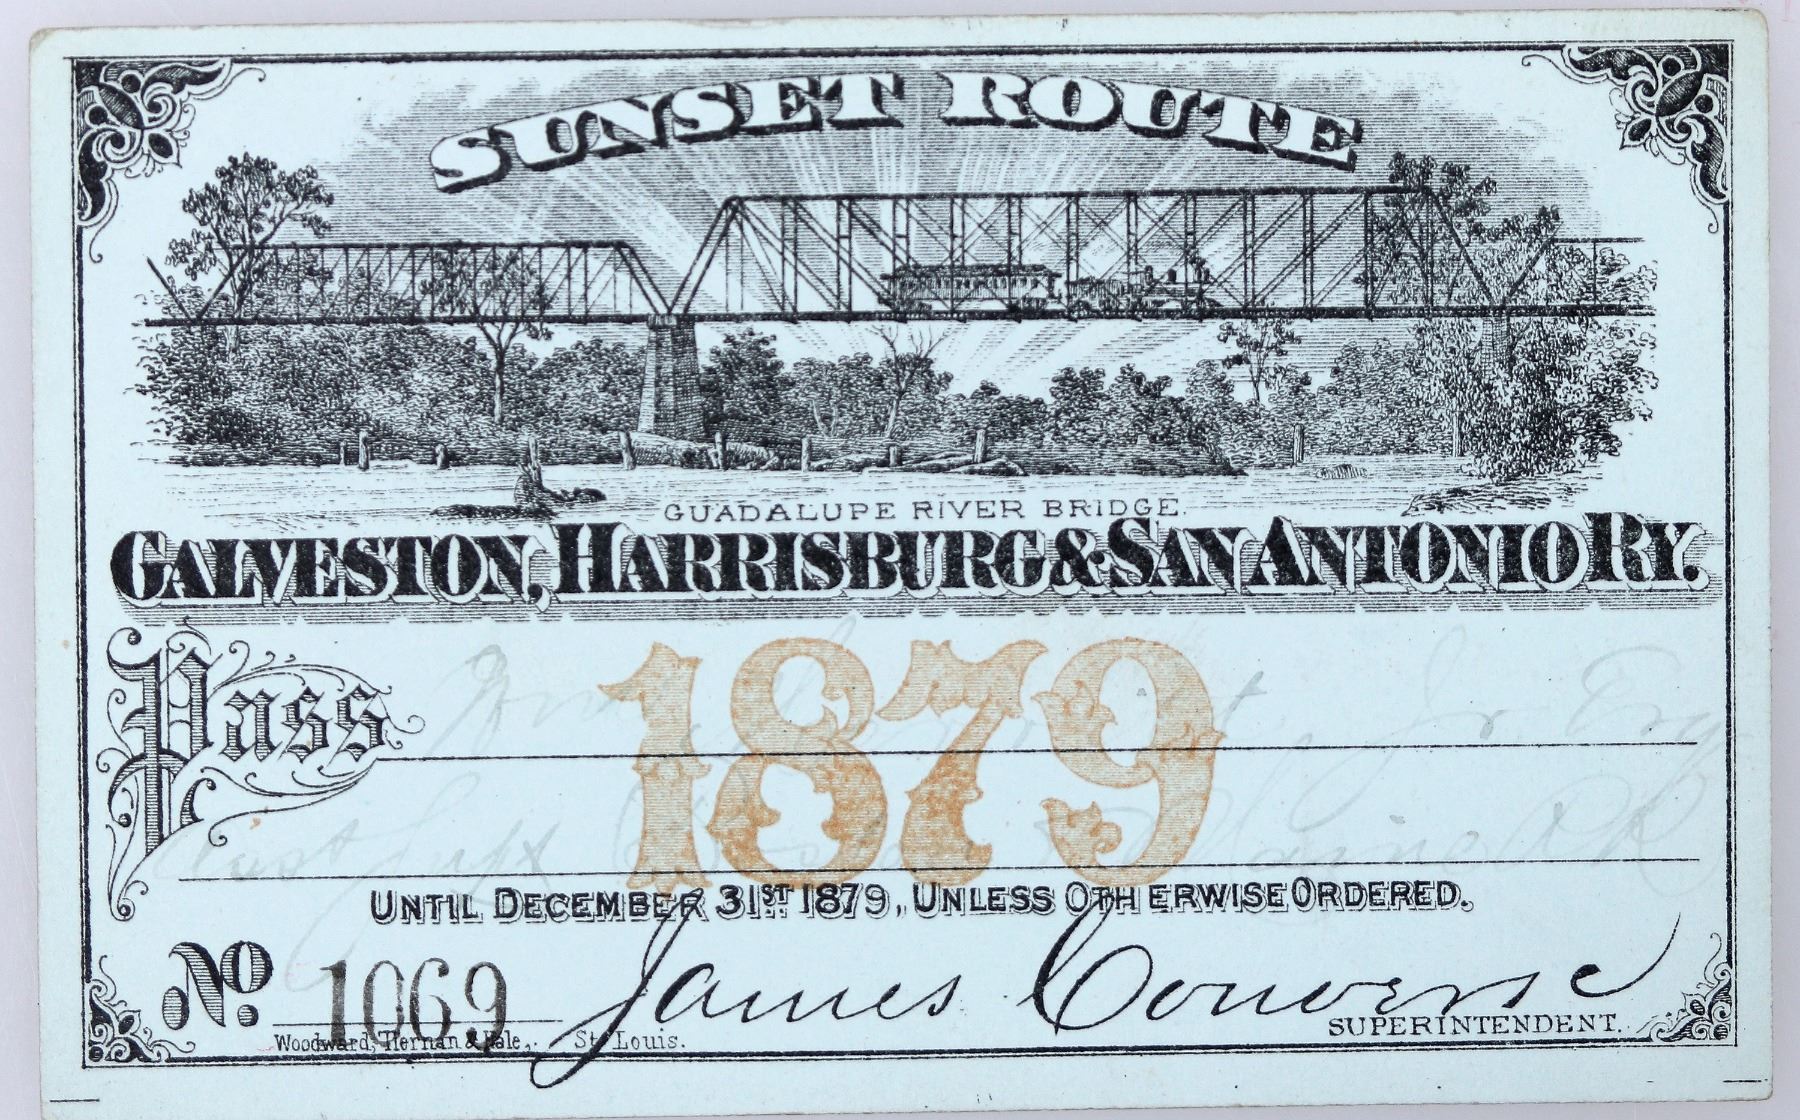 SUNSET ROUTE
GUADALUPE RIVER BRIDGE.
GALVESTON, HARRISBURG & SAN ANTONIO RY.
1879
Pass Jr. Esq
Asst Supt Maine RR
UNTIL DECEMBER 31ST 1879, UNLESS OTHERWISE ORDERED.
No. 1069 James Converse
SUPERINTENDENT.
Woodward, Tiernan & Hale, St. Louis.